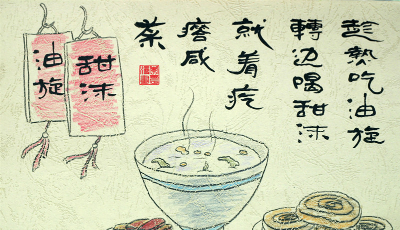 趁熱吃油旋
轉边喝甜沫
就着疙
瘩咸
菜
甜沫
油旋